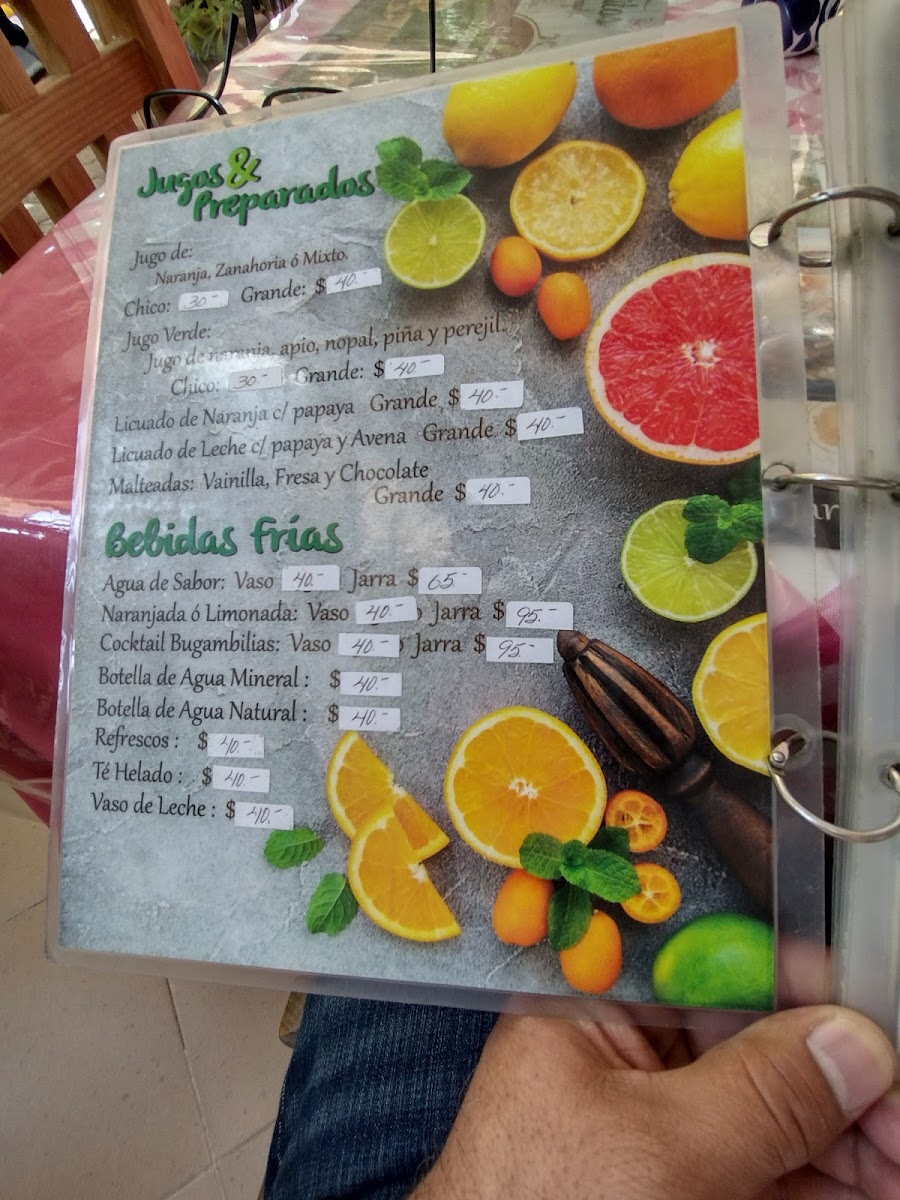 Jugos &
Preparados
Jugo de:
Naranja, Zanahoria ó Mixto.
Chico: 30.- Grande: $ 40.-
Jugo Verde:
Jugo de naranja, apio, nopal, piña y perejil.
Chico: 30.- Grande: $ 40.-
Licuado de Naranja c/ papaya Grande $ 40.-
Licuado de Leche c/ papaya y Avena Grande $ 40.-
Malteadas: Vainilla, Fresa y Chocolate
Grande $ 40.-
Bebidas Frías
Agua de Sabor: Vaso 40.- Jarra $ 65.-
Naranjada ó Limonada: Vaso 40.- Jarra $ 95.-
Cocktail Bugambilias: Vaso 40.- Jarra $ 95.-
Botella de Agua Mineral : $ 40.-
Botella de Agua Natural : $ 40.-
Refrescos : $ 40.-
Té Helado : $ 40.-
Vaso de Leche : $ 40.-